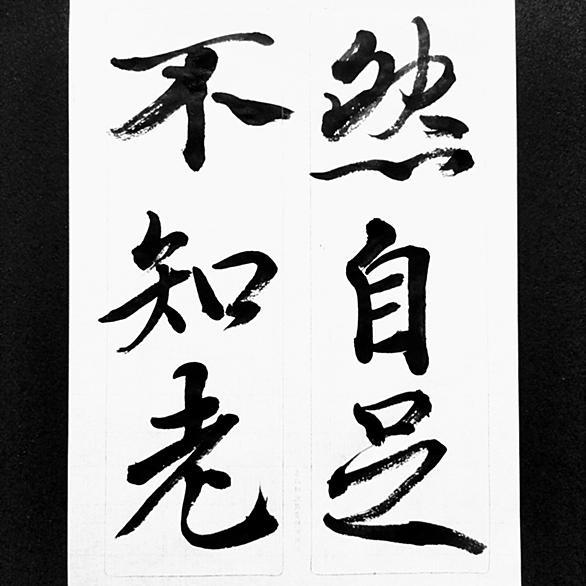 然自足
不知老